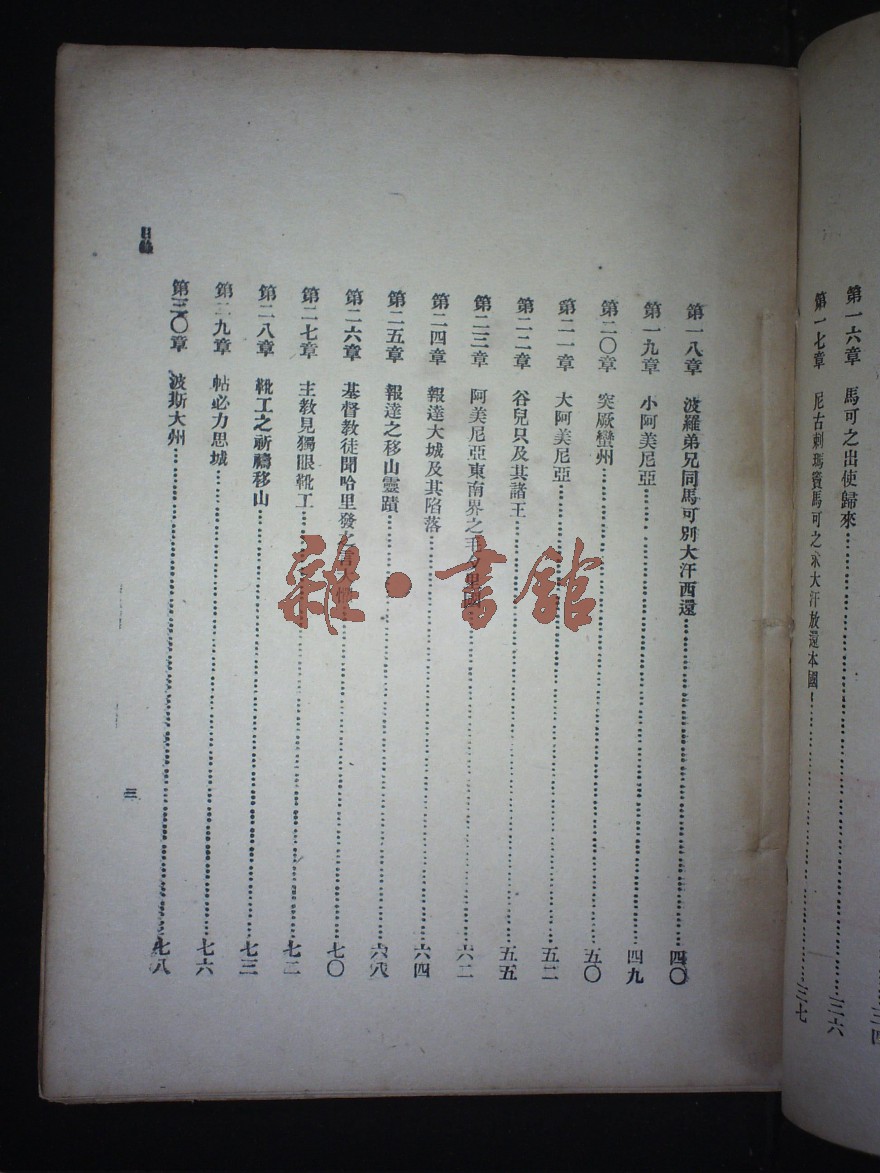 第一六章 馬可之出使歸來……三六
第一七章 尼古剌瑪竇馬可之求大汗放還本國……三七
第一八章 波羅弟兄同馬可別大汗西還……四〇
第一九章 小阿美尼亞……四九
第二〇章 突厥蠻州……五〇
第二一章 大阿美尼亞……五二
第二二章 谷兒只及其諸王……五五
第二三章 阿美尼亞東南界之……六二
第二四章 報達大城及其陷落……六四
第二五章 報達之移山靈蹟……六八
第二六章 基督教徒聞哈里發之……七〇
第二七章 主教見獨眼靴工……七二
第二八章 靴工之祈禱移山……七三
第二九章 帖必力思城……七六
第三〇章 波斯大州……七八
目錄
三
雜·書館